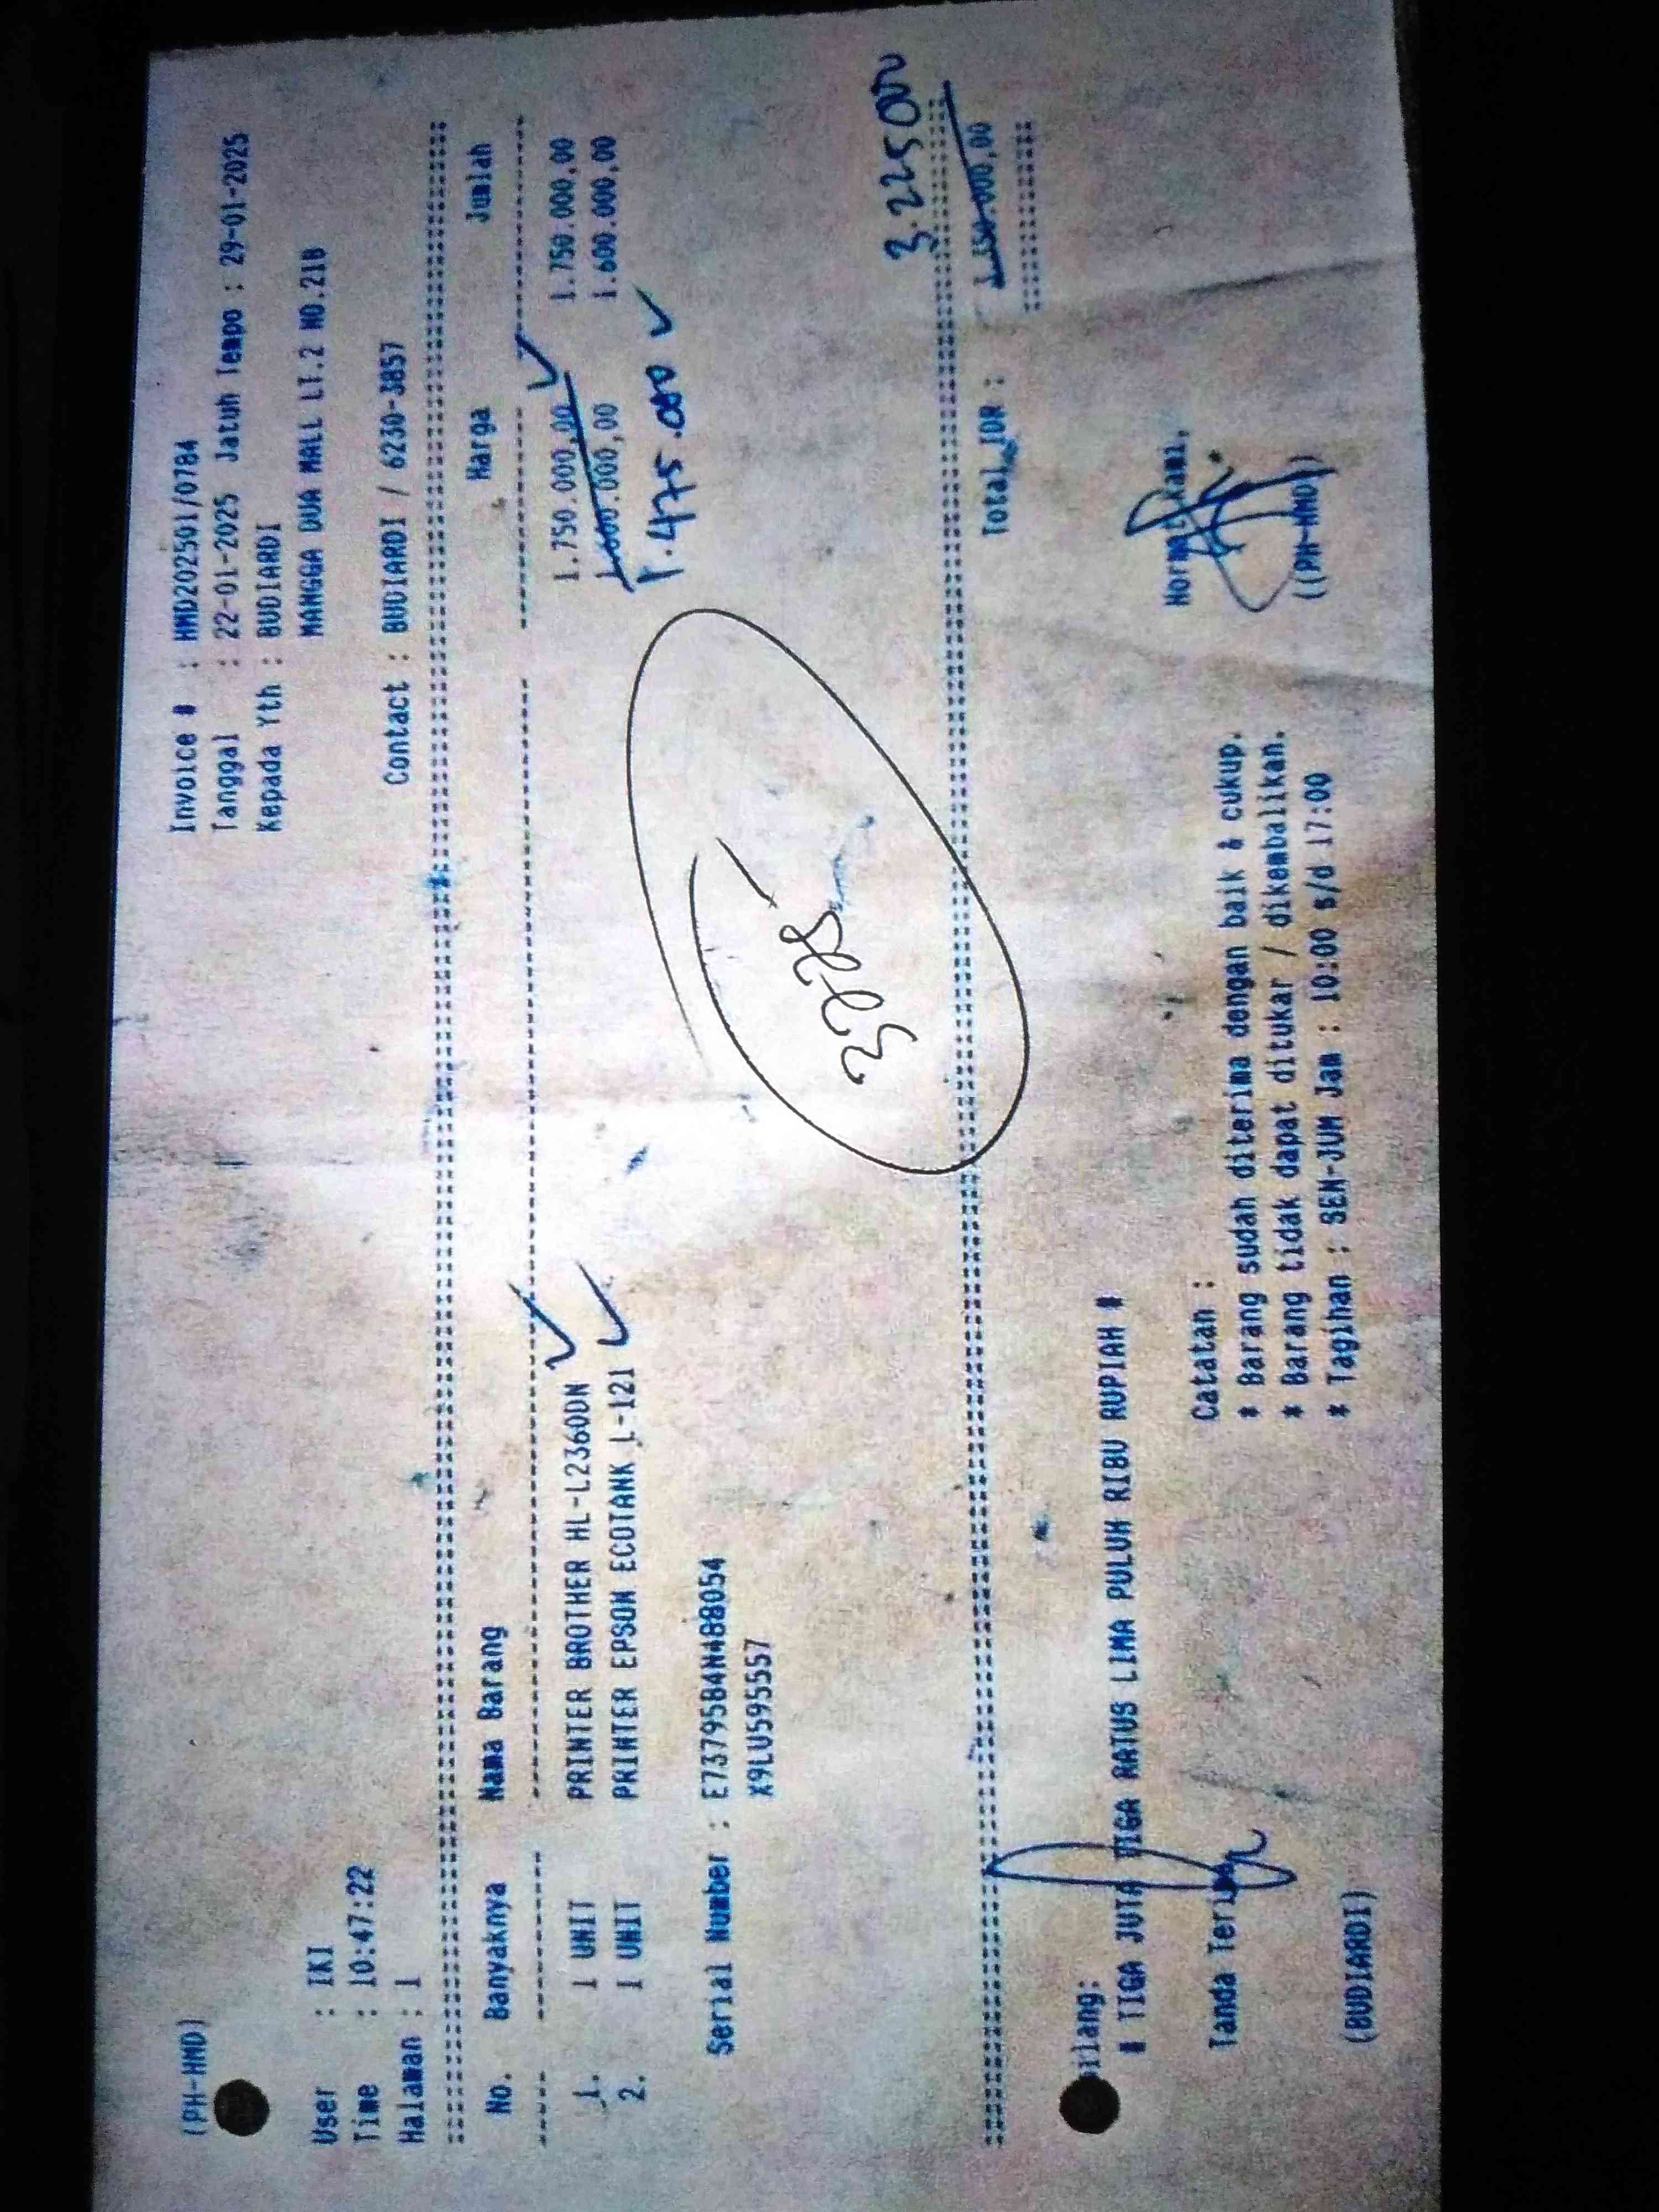 (PH-HMD)
Invoice # : HMD202501/0784
Tanggal : 22-01-2025 Jatuh Tempo : 29-01-2025
Kepada Yth : BUDIARDI
MANGGA DUA MALL LT.2 NO.21B
User : IKI
Time : 10:47:22
Halaman : 1
Contact : BUDIARDI / 6230-3857
No. Banyaknya Nama Barang Harga Jumlah
1. 1 UNIT PRINTER BROTHER HL-L2360DN 1.750.000,00 1.750.000,00
2. 1 UNIT PRINTER EPSON ECOTANK L-121 1.600.000,00 1.600.000,00
1.475.000
Serial Number : E73795B4N488054
X9LU595557
3.225000
Total IDR : 3.350.000,00
silang:
# TIGA JUTA TIGA RATUS LIMA PULUH RIBU RUPIAH #
Tanda Terima
Hormat Kami,
Catatan :
* Barang sudah diterima dengan baik & cukup.
* Barang tidak dapat ditukar / dikembalikan.
* Tagihan : SEN-JUM Jam : 10:00 s/d 17:00
(BUDIARDI)
((PH-HMD))